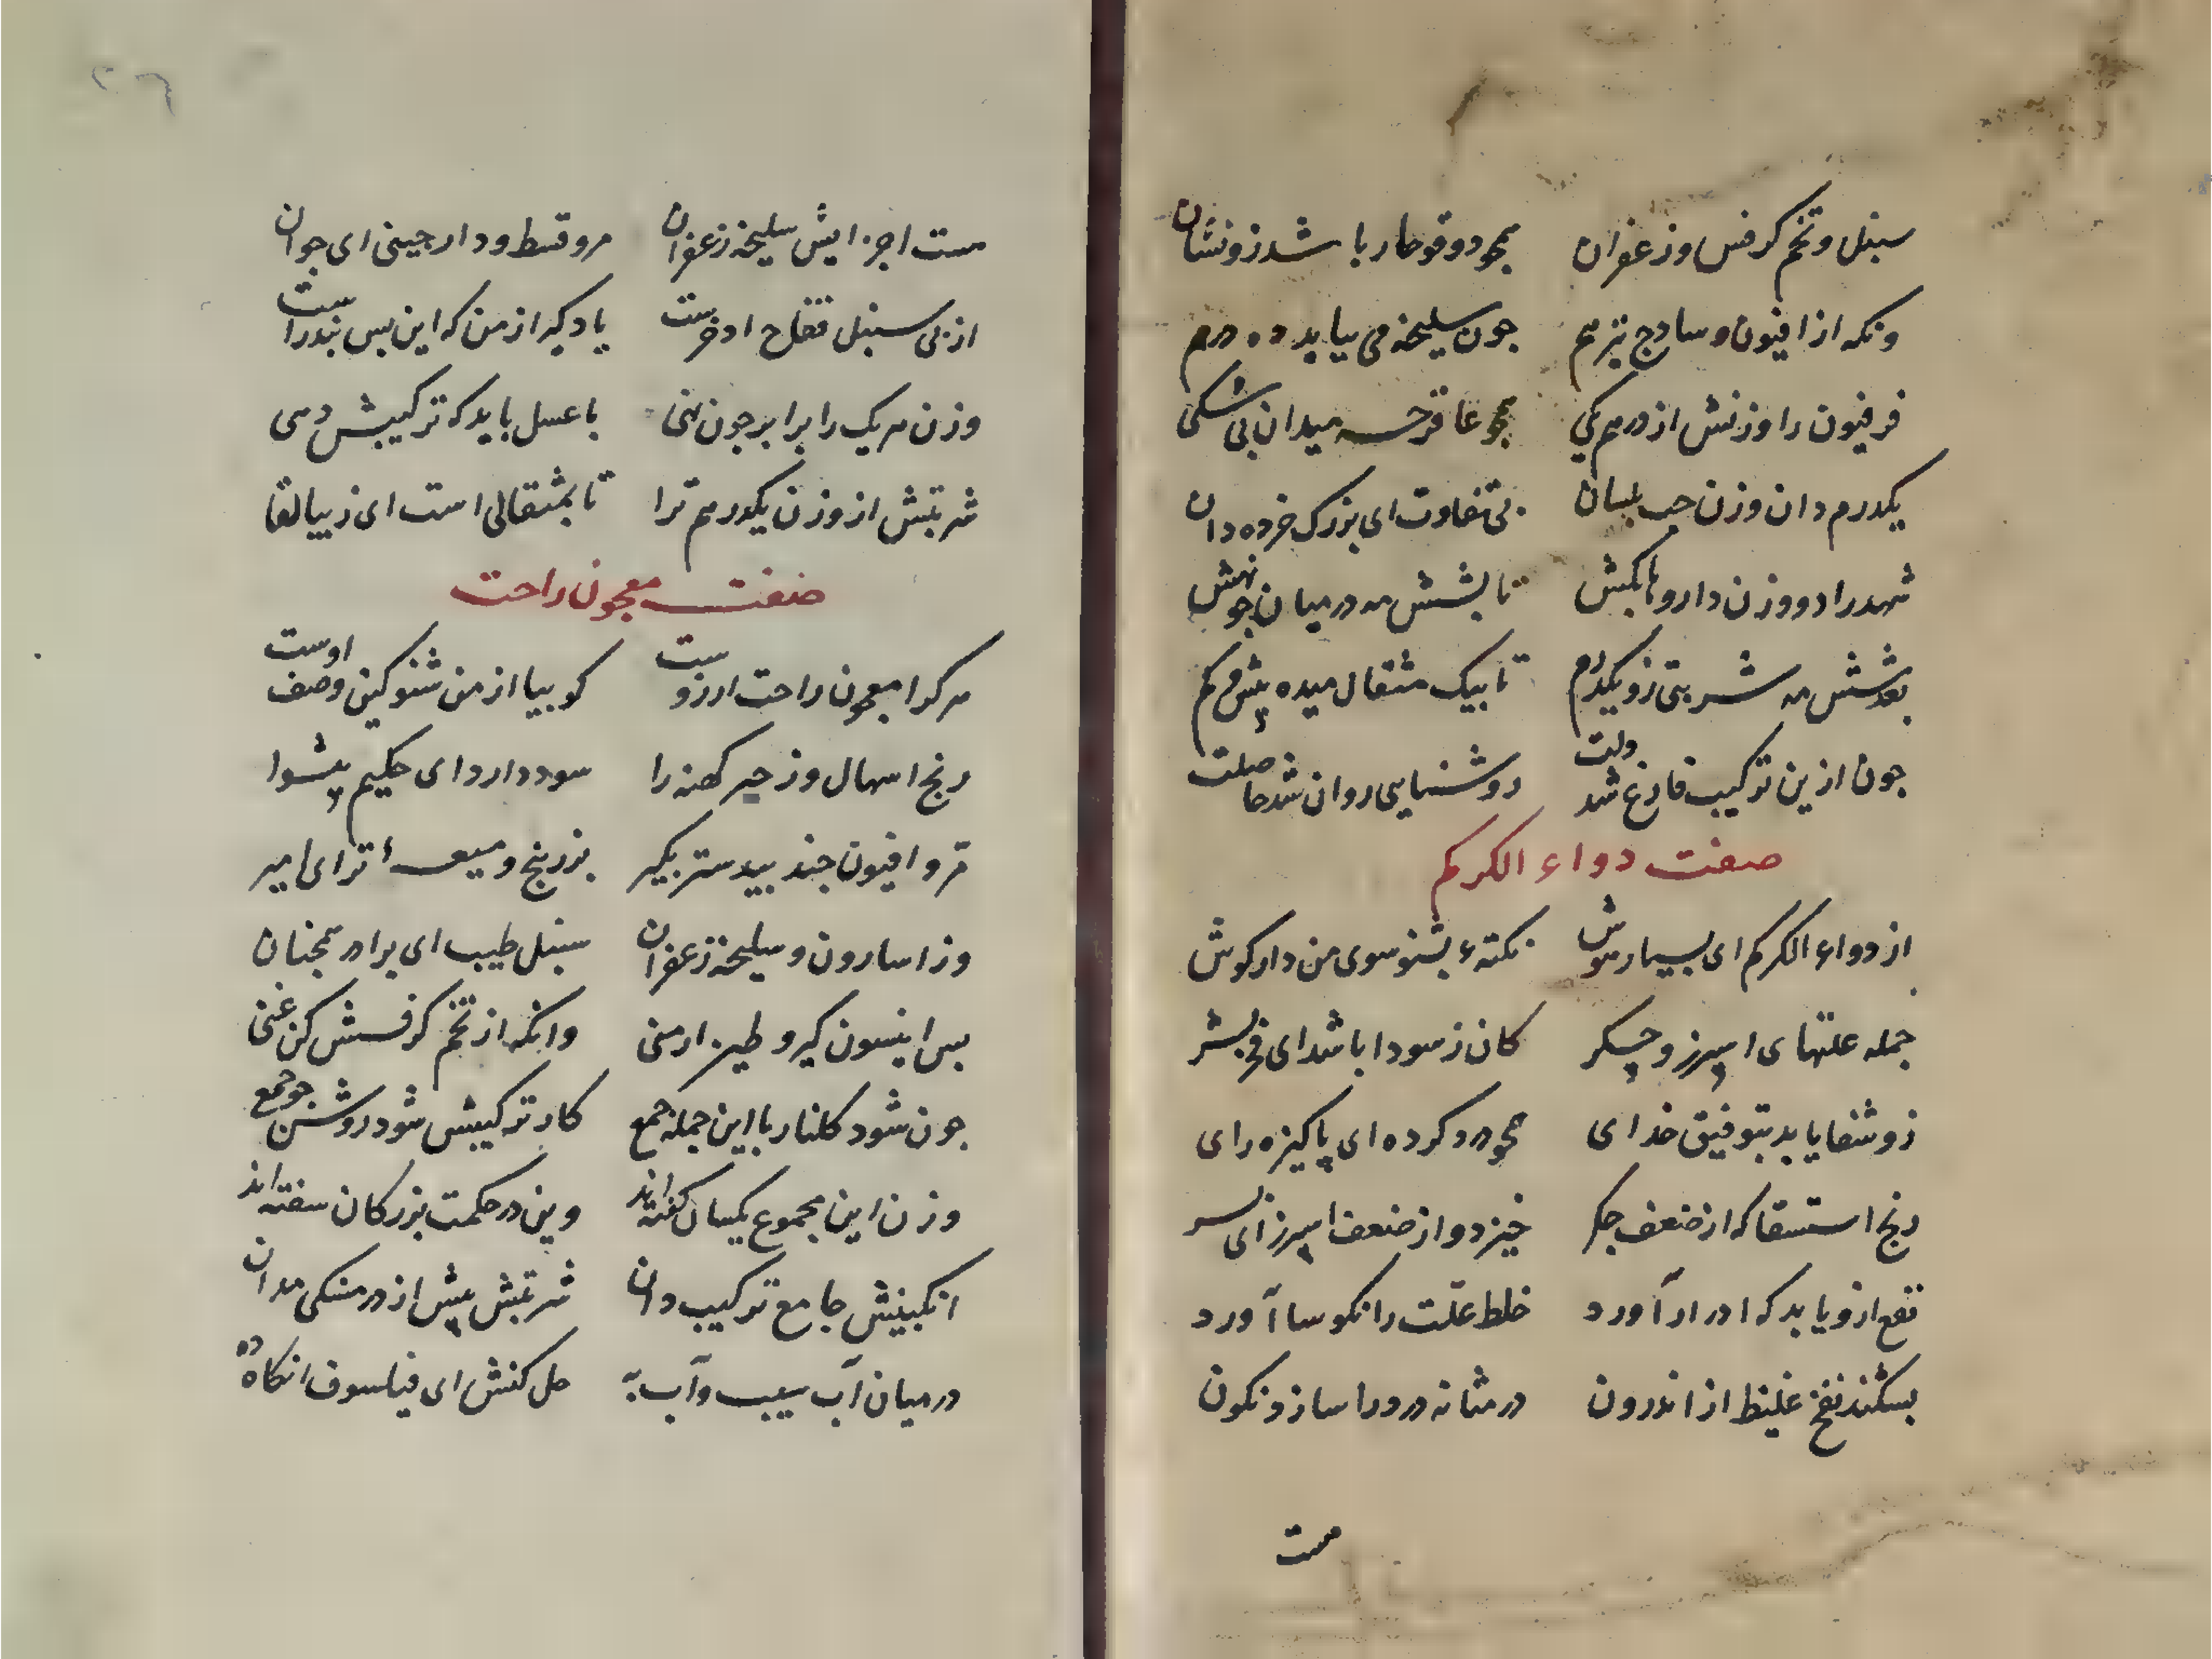 سنبل و تخم کرفس و زعفران همجو دوقو جار باشد زو نشان
ونکه از افیون و سادج نیز هم جون سلیخه می بباید ده درم
فرفیون را وزنش از درهم یکی همجو عاقرحه میدان بی شکی
یکدرم دان وزن حب بلسان بی تفاوت ای بزرک خرده دان
شهد را دو وزن داروها بکش تا بشش مه در میان جو نهش
بعد شش مه شربتی زو یکدرم تا بیک مثقال میده پیش و کم
جون ازین ترکیب فارغ شد دلت روشنایی روان شد حاصلت
صفت دواء الکرکم
از دواء الکرکم ای بسیار هوش نکتهء بشنو سوی من دار کوش
جمله علتهای اسپرز و جکر کان ز سودا باشد ای فخر بشر
زو شفا یابد بتوفیق خدای همجو درد کرده ای پاکیزه رای
رنج استسقا که از ضعف جکر خیزد و از ضعف اسپرز ای پسر
نفع ازو یابد که ادرار آورد خلط علّت را نکوسا آورد
بشکند نفخ غلیظ از اندرون در مثانه درد را سازد نکون
هست
۲۶
هست اجزایش سلیخه زعفران مر و قسط و دارجینی ای جوان
از پی سنبل فقاح اذخرست یاد کیر از من که این بس نیدراست
وزن هر یک را برابر جون نهی با عسل باید که ترکیبش دهی
شربتش از وزن یکدرهم ترا تا بمثقالی است ای زیبا لقا
صفت معجون راحت
هر کرا معجون راحت ارزوست کو بیا از من شنو کین وصف اوست
رنج اسهال و زحیر کهنه را سود دارد ای حکیم پیشوا
مرّ و افیون جند بیدستر بکیر بزر بنج و میعه تر ای امیر
وز اسارون و سلیخه زعفران سنبل طیب ای برادر همجنان
پس انیسون کیر و طین ارمنی وانکه از تخم کرفسش کن غنی
جون شود کلنار با این جمله جمع کار ترکیبش شود روشن جو شمع
وزن این مجموع یکسان کفته اند وین در حکمت بزرکان سفته اند
انکبینش جامع ترکیب دان شربتش پیش از درمسنکی مدان
در میان آب سیب و آب به حل کنش ای فیلسوف انکاه ده